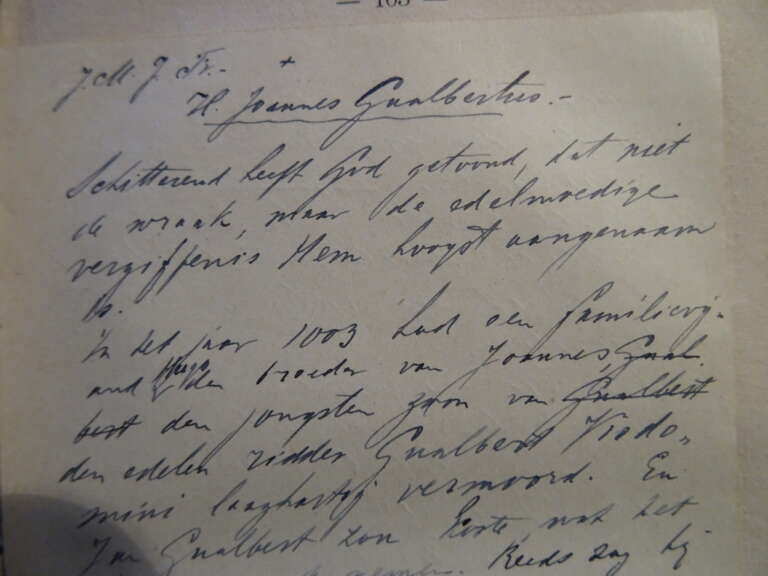 — 103 —
J. M. J. Fr.- +
H. Joannes Gualbertus.-
Schitterend heeft God getoond, dat niet
de wraak, maar de edelmoedige
vergiffenis Hem hoogst aangenaam
is.
In het jaar 1003 had een familievij-
and Hugo den broeder van Joannes Gual
bert den jongsten zoon van Gualbert
den edelen ridder Gualbert Visdo-
mini laaghartig vermoord. En
Jan Gualbert zon Korte wat het
Reeds zag hij